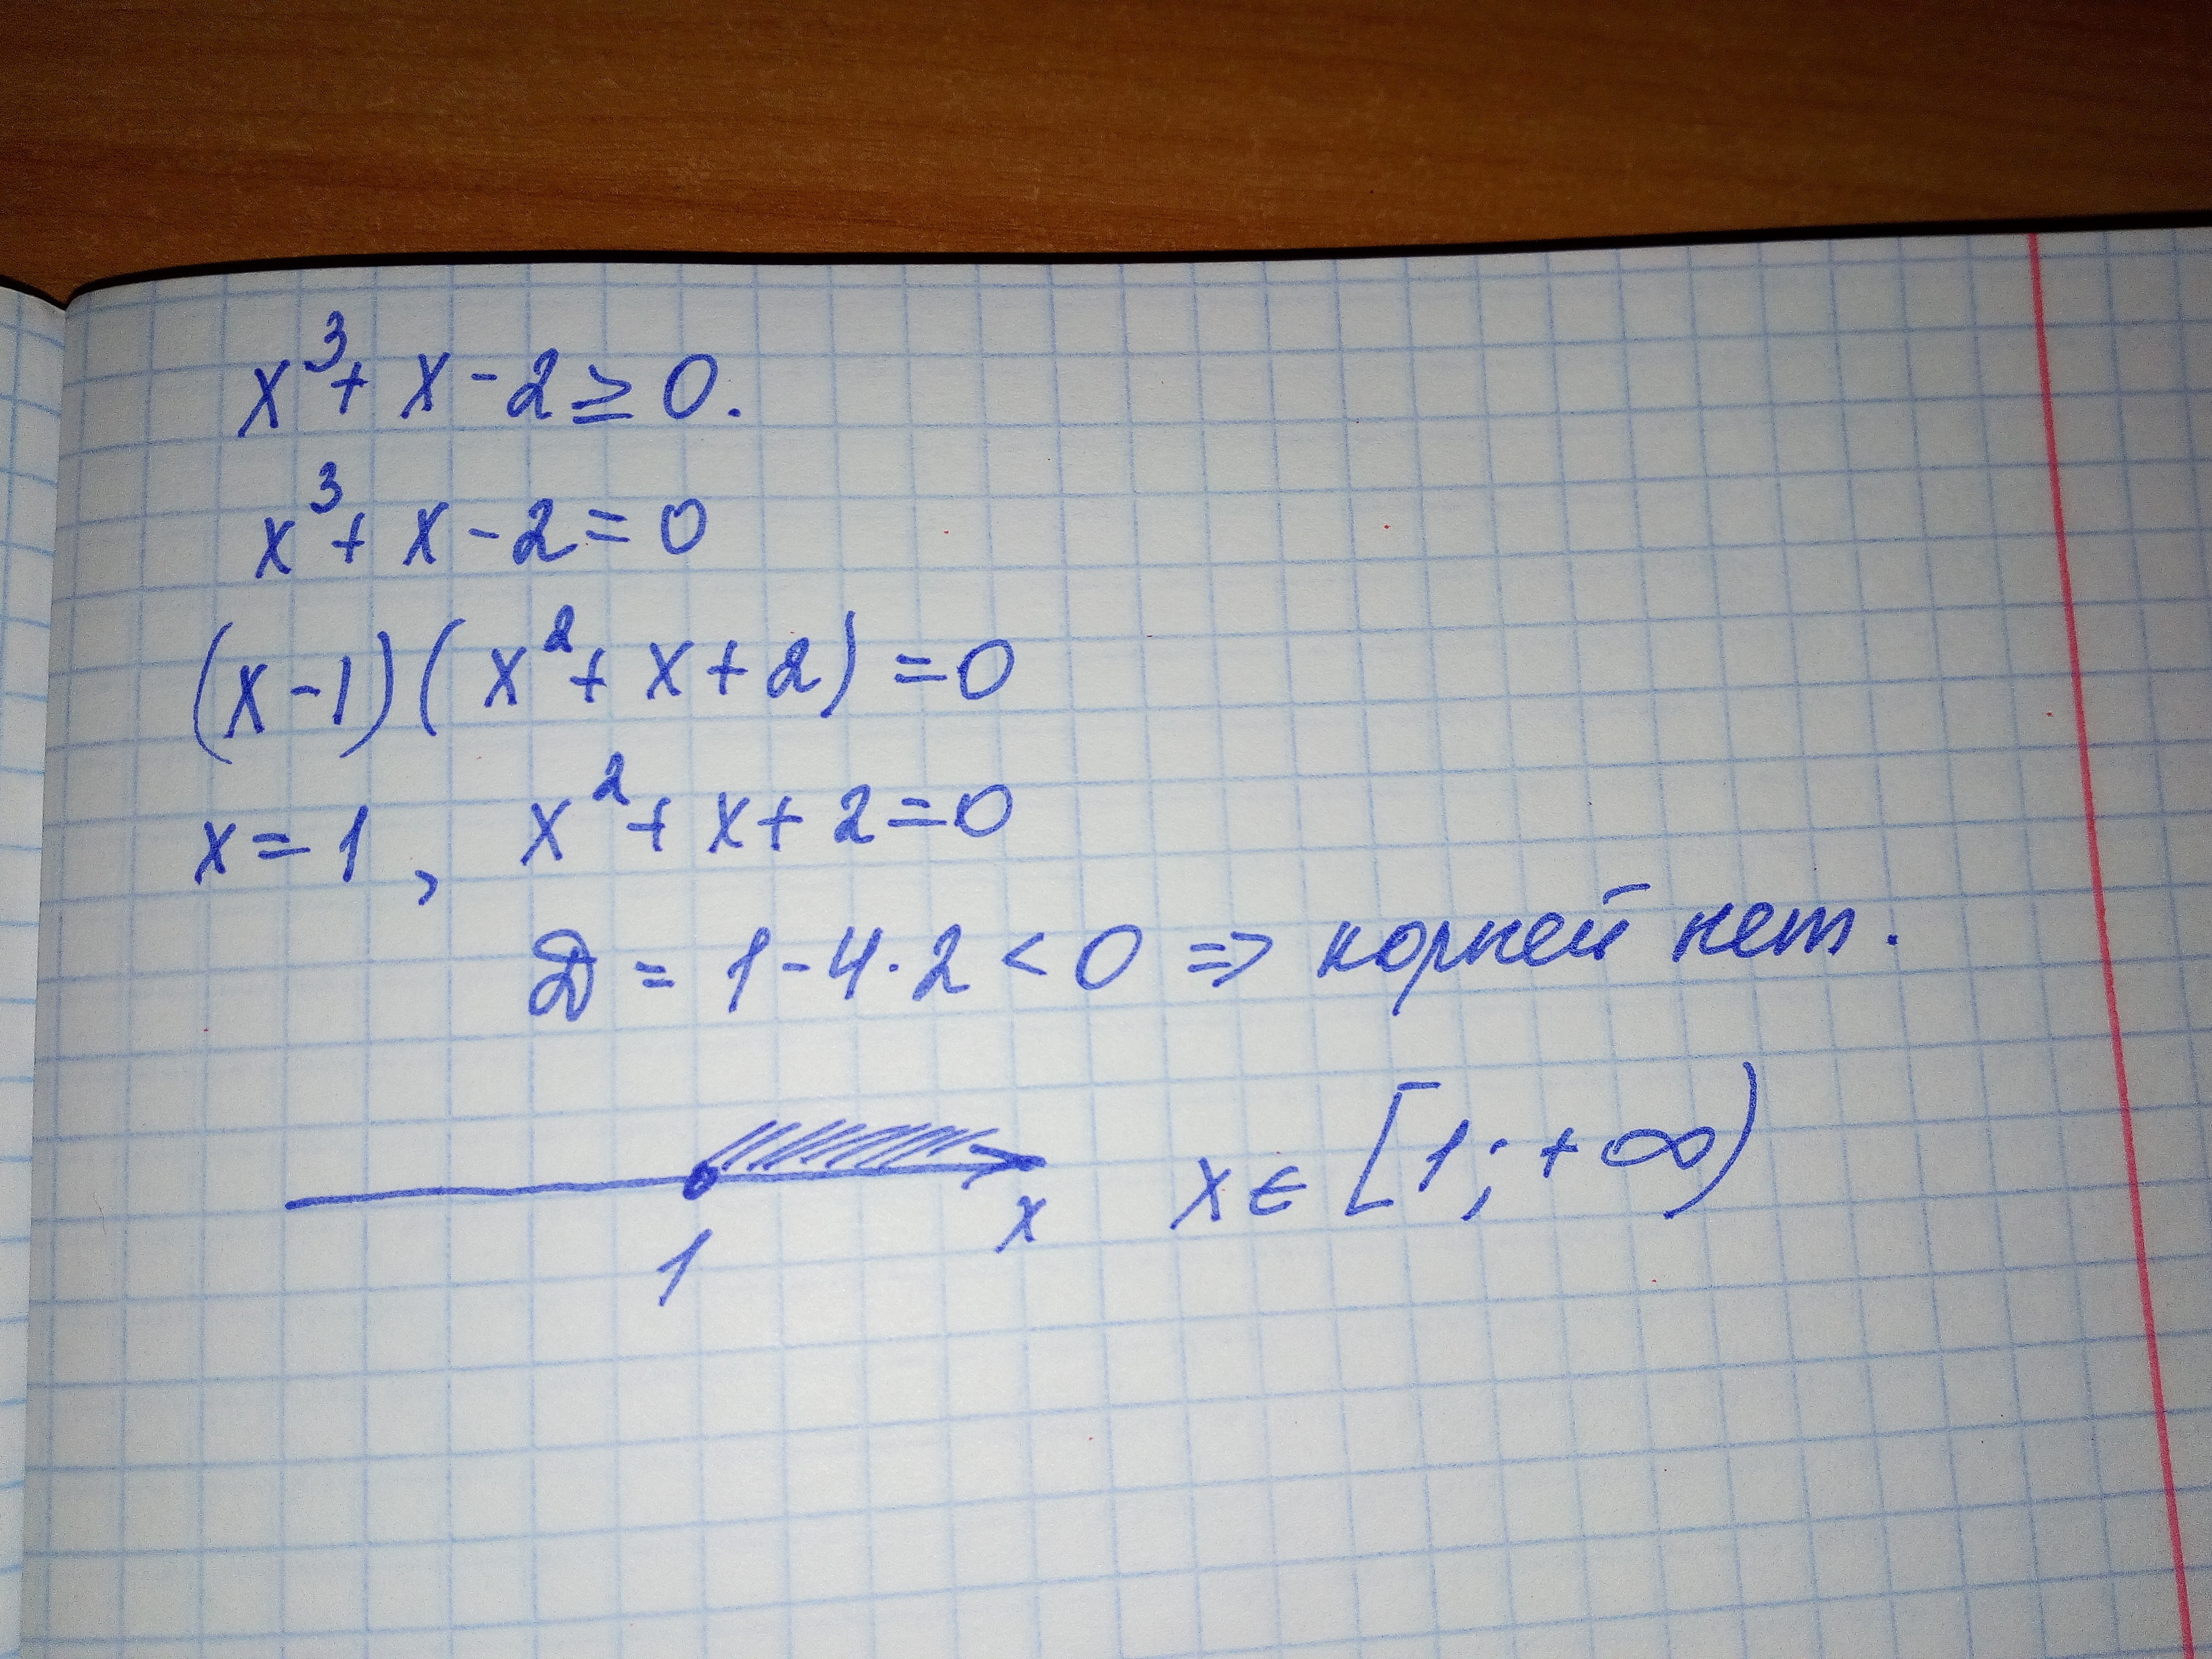 x³ + x - 2 ≥ 0.
x³ + x - 2 = 0
(x - 1)(x² + x + 2) = 0
x = 1, x² + x + 2 = 0
D = 1 - 4 · 2 < 0 => корней нет.
1 x x ∈ [1; +∞)